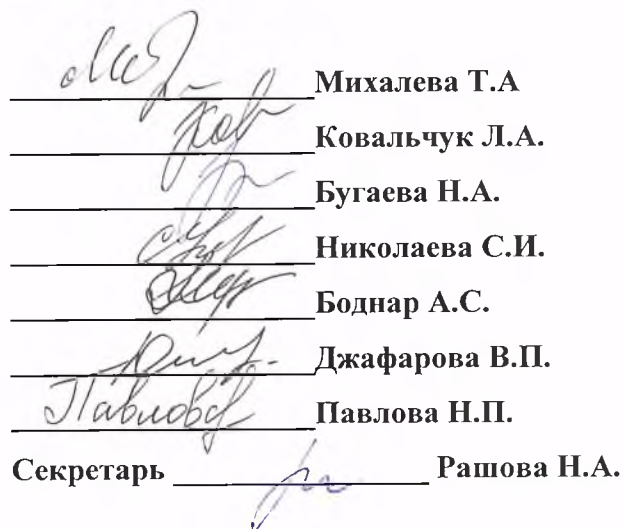 Михалева Т.А
Ковальчук Л.А.
Бугаева Н.А.
Николаева С.И.
Боднар А.С.
Джафарова В.П.
Павлова Павлова Н.П.
Секретарь Рашова Н.А.